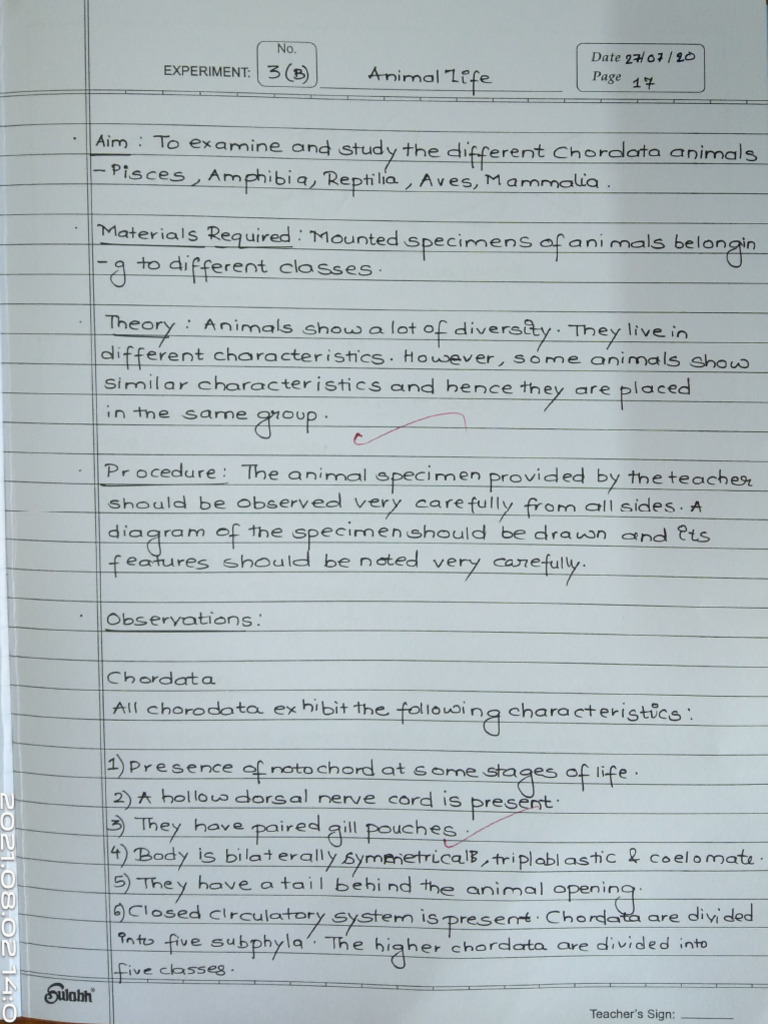 No.
EXPERIMENT: 3(B) Animal Life
Date 27/07/20
Page 17
Aim : To examine and study the different Chordata animals
- Pisces, Amphibia, Reptilia, Aves, Mammalia.
Materials Required : Mounted specimens of animals belongin
-g to different classes.
Theory : Animals show a lot of diversity. They live in
different characteristics. However, some animals show
similar characteristics and hence they are placed
in the same group.
Procedure : The animal specimen provided by the teacher
should be observed very carefully from all sides. A
diagram of the specimen should be drawn and its
features should be noted very carefully.
Observations:
Chordata
All chorodata exhibit the following characteristics:
1) Presence of notochord at some stages of life.
2) A hollow dorsal nerve cord is present.
3) They have paired gill pouches.
4) Body is bilaterally symmetrical, triploblastic & coelomate.
5) They have a tail behind the animal opening.
6) Closed circulatory system is present. Chordata are divided
into five subphyla. The higher chordata are divided into
five classes.
Sulabh
Teacher's Sign:
2021.08.02 14:0